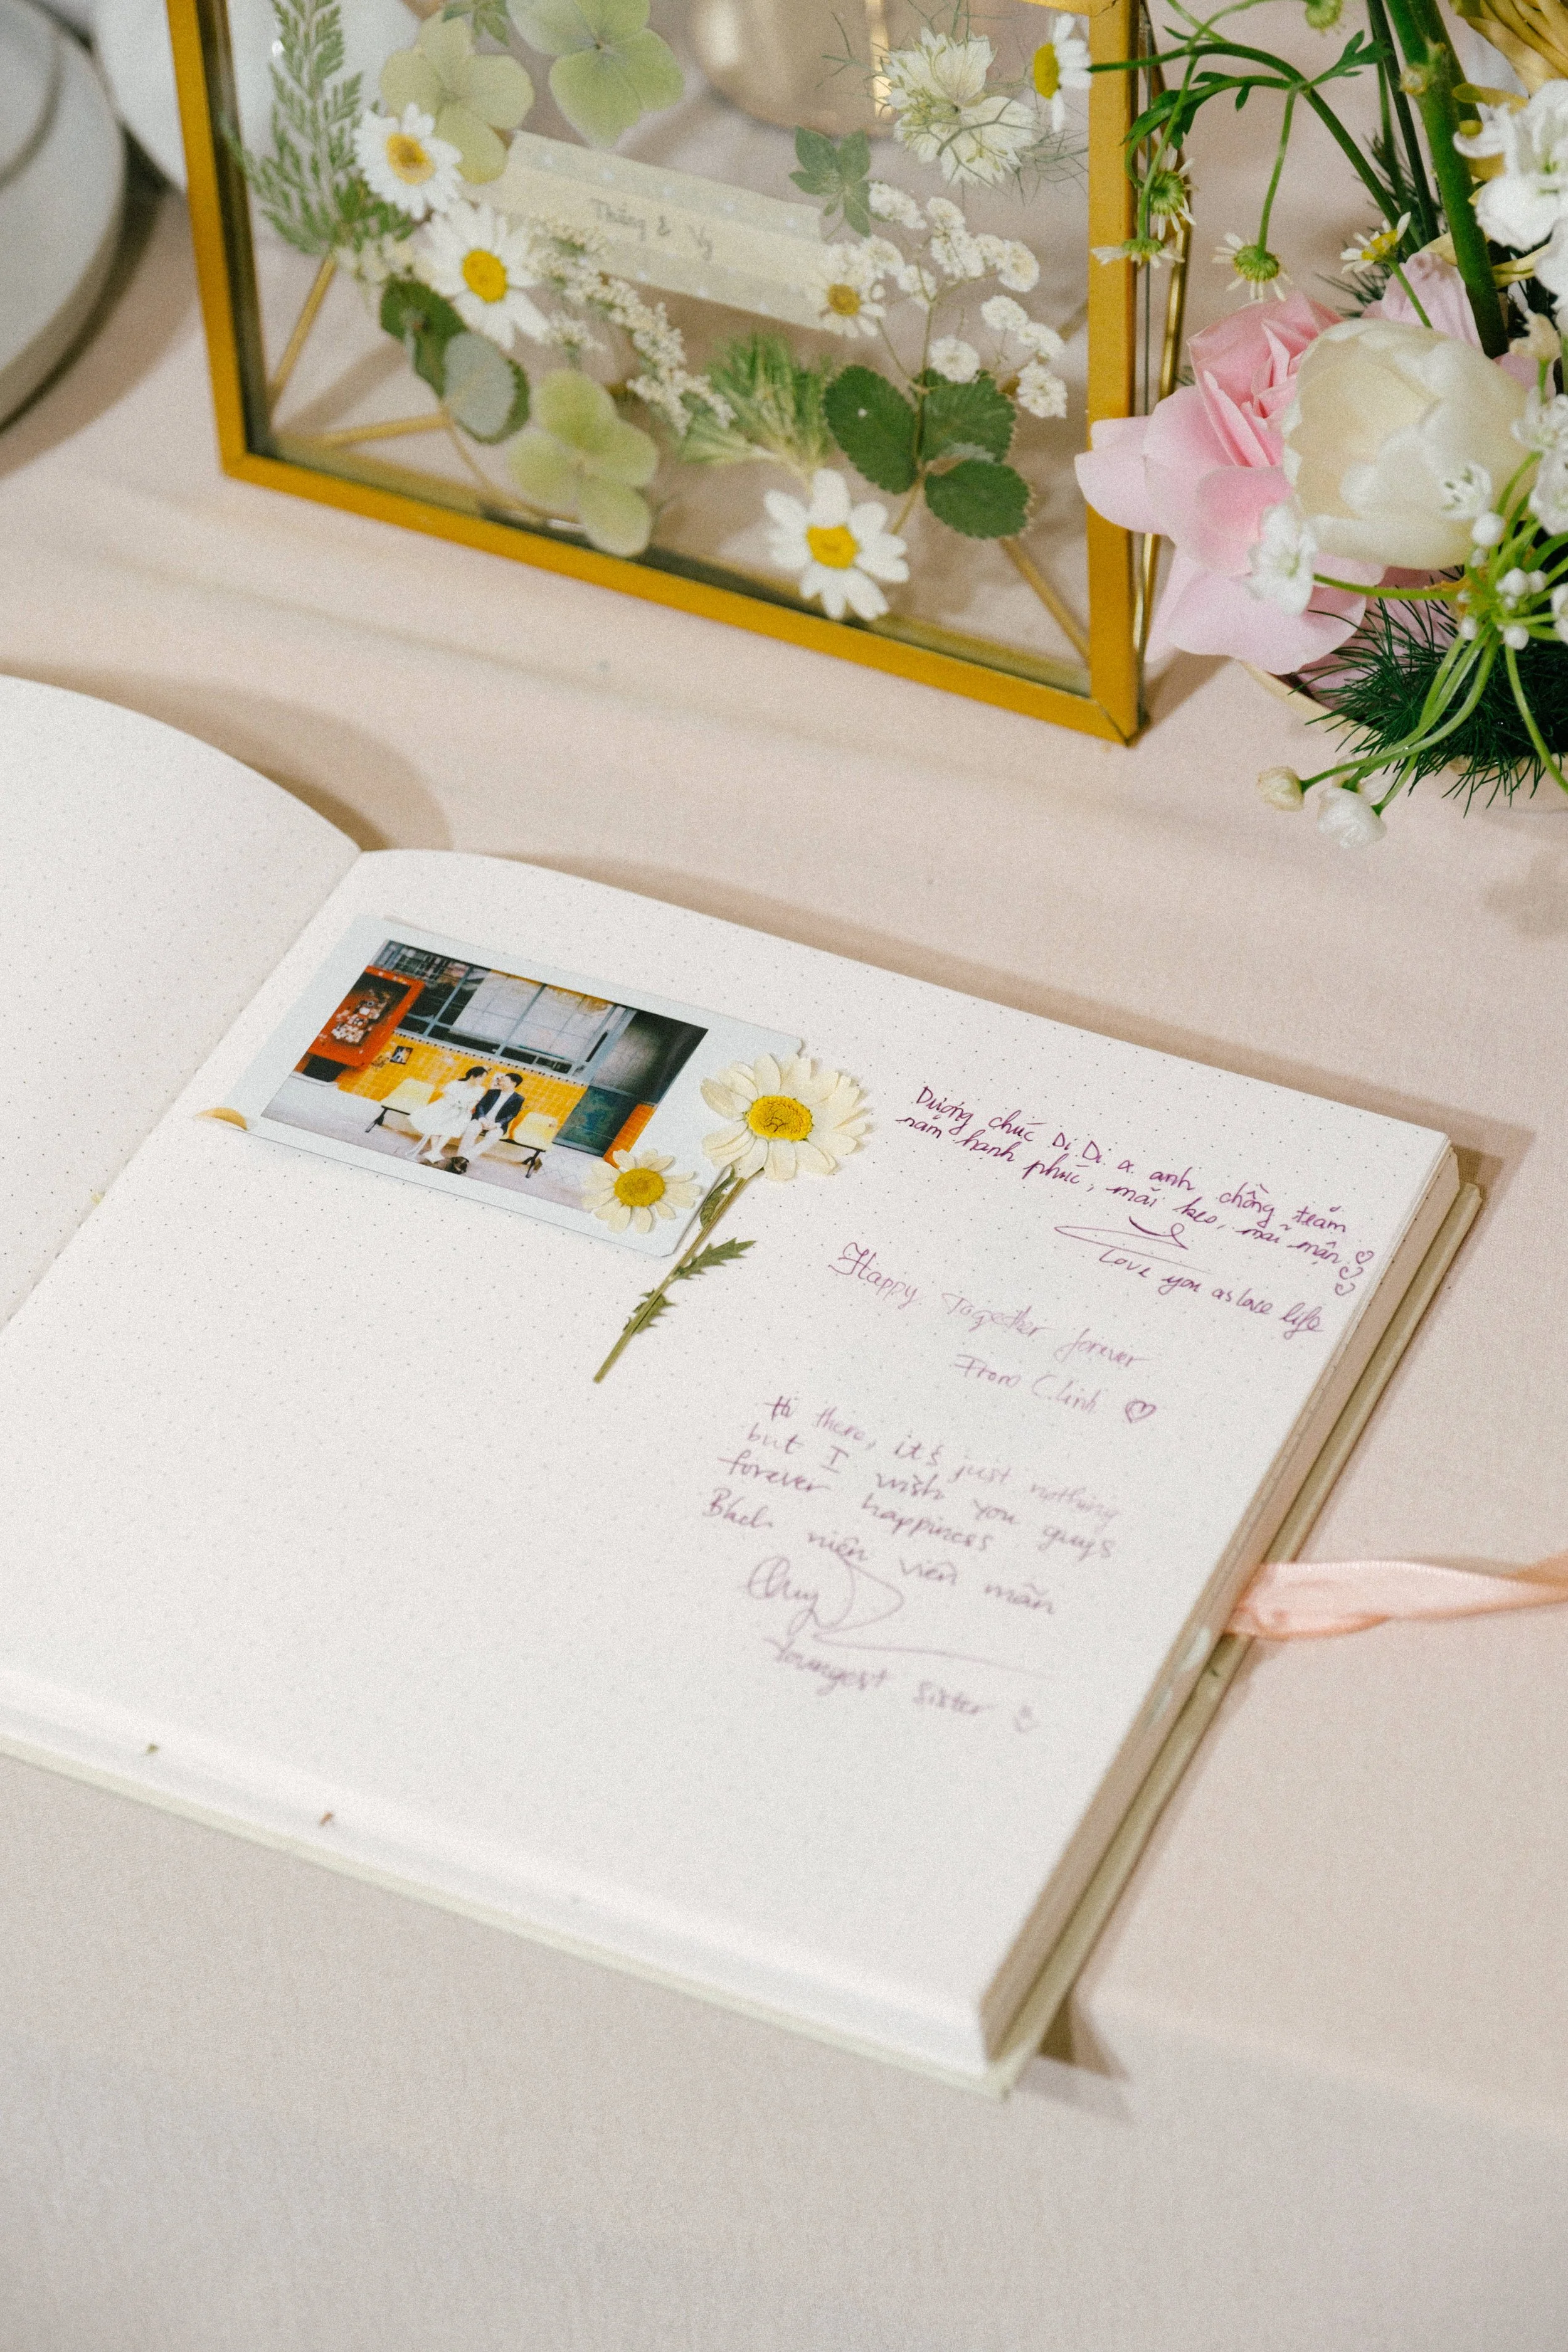 Thắng & Vy
Dượng chúc Dì Dì & anh chồng trăm
năm hạnh phúc, mãi keo, mãi mặn
Love you as love life
Happy Together forever
From C.Linh ♡
Hi there, it's just nothing
but I wish you guys
forever happiness
Bách niên viên mãn
Youngest sister